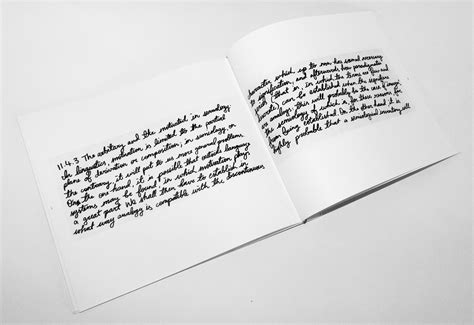 11.4.3 The arbitrary and the motivated in semiology
In linguistics, motivation is limited to the partial
plane of derivation or composition, in semiology, on
the contrary, it will put to us more general problems.
On the one hand, it is possible that outside language
systems may be found, in which motivation plays
a great part. We shall then have to establish in
what way analogy is compatible with the discontinuous
which up to now has seemed necessary
to signification, and afterwards how paradigmatic
that is, in which the terms are few and
can be established when the signifiers
are analogs: this will probably be the case of images
the semiology of which is, for these reasons, far
from being established. On the other hand, it is
highly probable that a semiological inventory will